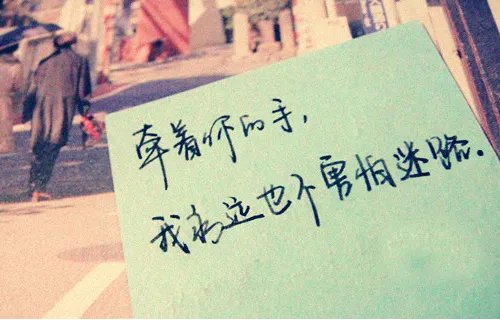 牵着你的手,
我永远也不害怕迷路.